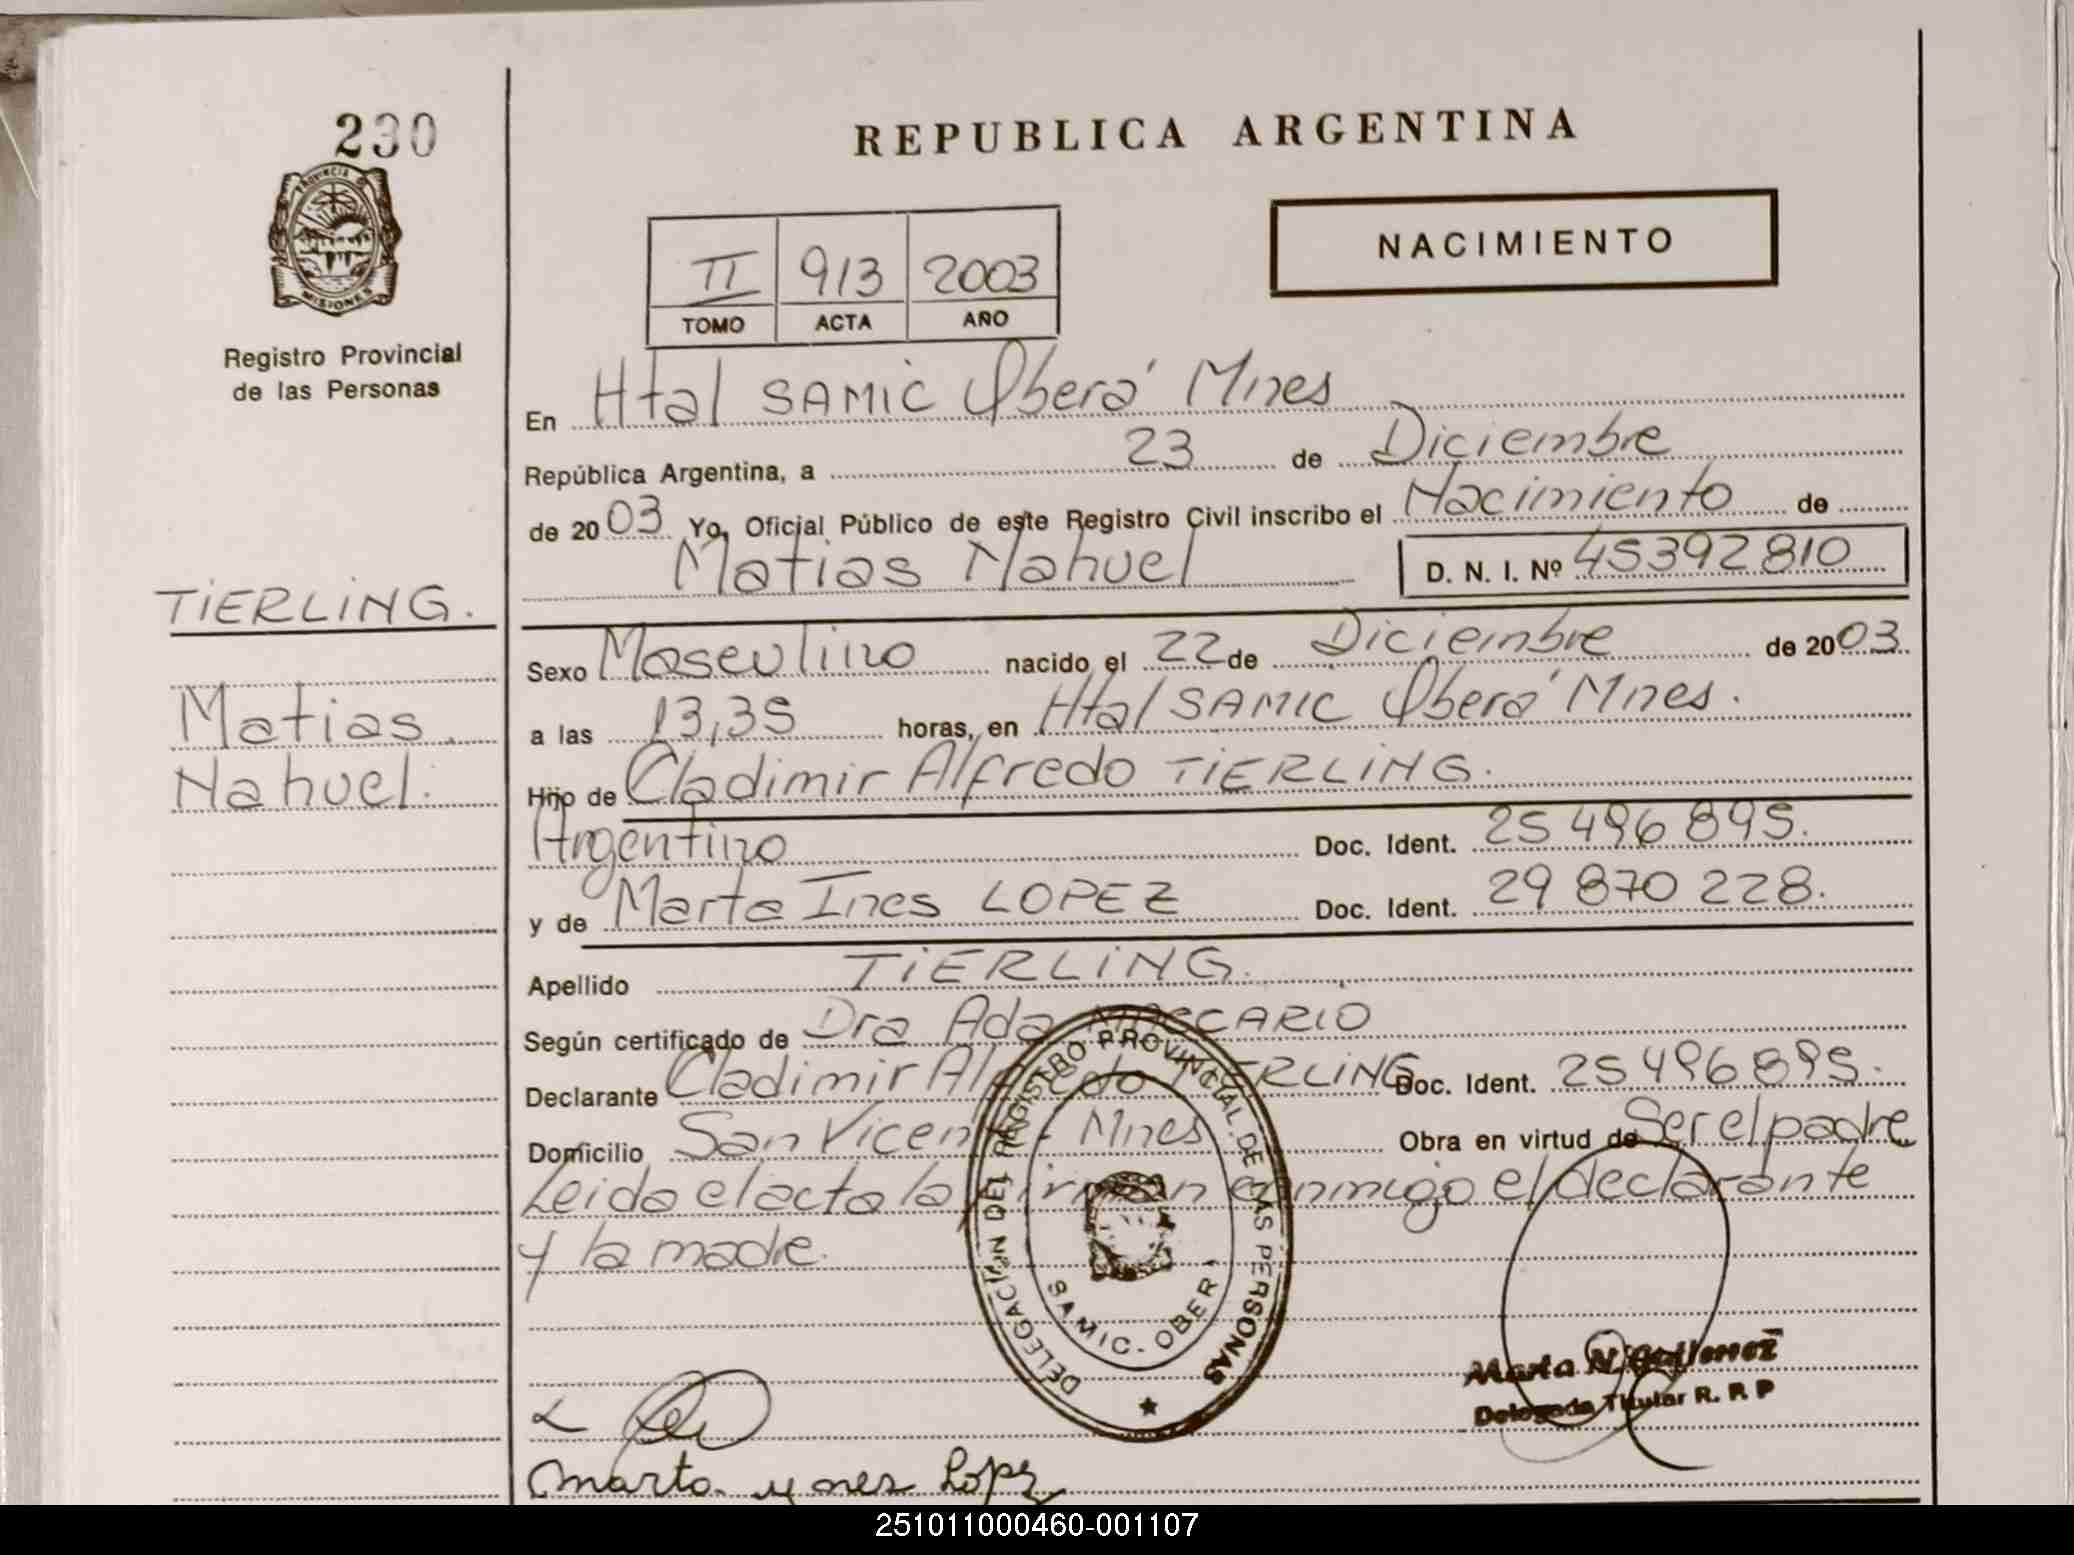 230
PROVINCIA DE
MISIONES
Registro Provincial
de las Personas
REPUBLICA ARGENTINA
NACIMIENTO
II 913 2003
TOMO ACTA AÑO
En Htal SAMIC Oberá Mnes
República Argentina, a 23 de Diciembre
de 2003 Yo, Oficial Público de este Registro Civil inscribo el Nacimiento de
Matias Nahuel D. N. I. Nº 45392810
TIERLING.
Matias
Nahuel.
Sexo Masculino nacido el 22 de Diciembre de 2003
a las 13,35 horas, en Htal SAMIC Oberá Mnes.
Hijo de Cladimir Alfredo TIERLING.
Argentino Doc. Ident. 25 496 895.
y de Marta Ines LOPEZ Doc. Ident. 29 870 228.
Apellido TIERLING.
Según certificado de Dra Ada
Declarante Cladimir Alfredo TIERLING Doc. Ident. 25 496 895.
Domicilio San Vicente - Mnes. Obra en virtud de Ser el padre
Leida el acta la firman conmigo el declarante
y la madre.
DELEGACION DEL REGISTRO PROVINCIAL DE LAS PERSONAS
SAMIC - OBERA
Marta N. Gutierrez
Delegada Titular R. P. P
Marta ynes Lopez
251011000460-001107